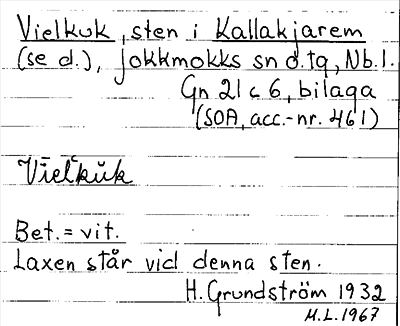 Vielkuk, sten i Kallakjarem
(se d.), Jokkmokks sn o. tg, Nb. l.
Gn 21 c 6, bilaga
(SOA, acc.-nr. 461)
Vielkuk
Bet. = vit.
Laxen står vid denna sten.
H. Grundström 1932
M.L. 1967